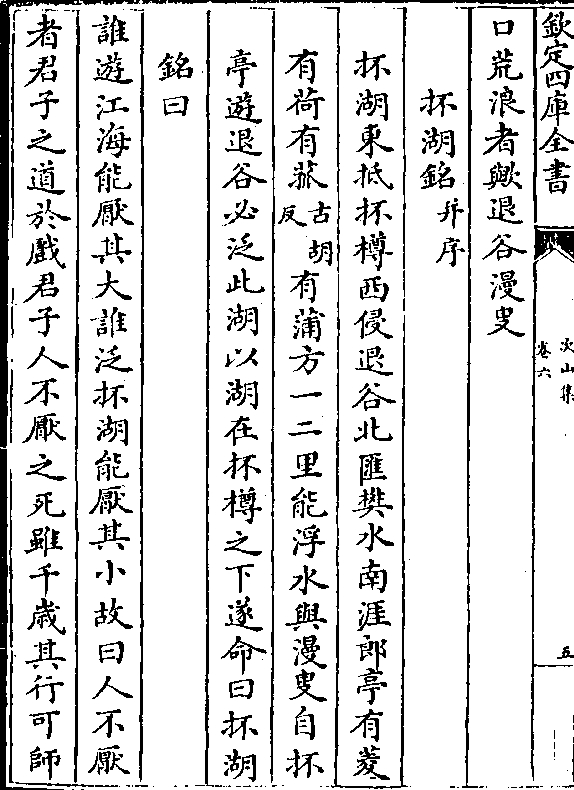 欽定四庫全書
次山集
卷六
五
口荒浪者歟退谷漫叟
抔湖銘并序
抔湖東抵抔樽西侵退谷北匯樊水南涯郎亭有菱
有荷有菰古胡反有蒲方一二里能浮水與漫叟自抔
亭遊退谷必泛此湖以湖在抔樽之下遂命曰抔湖
銘曰
誰遊江海能厭其大誰泛抔湖能厭其小故曰人不厭
者君子之道於戲君子人不厭之死雖千歳其行可師